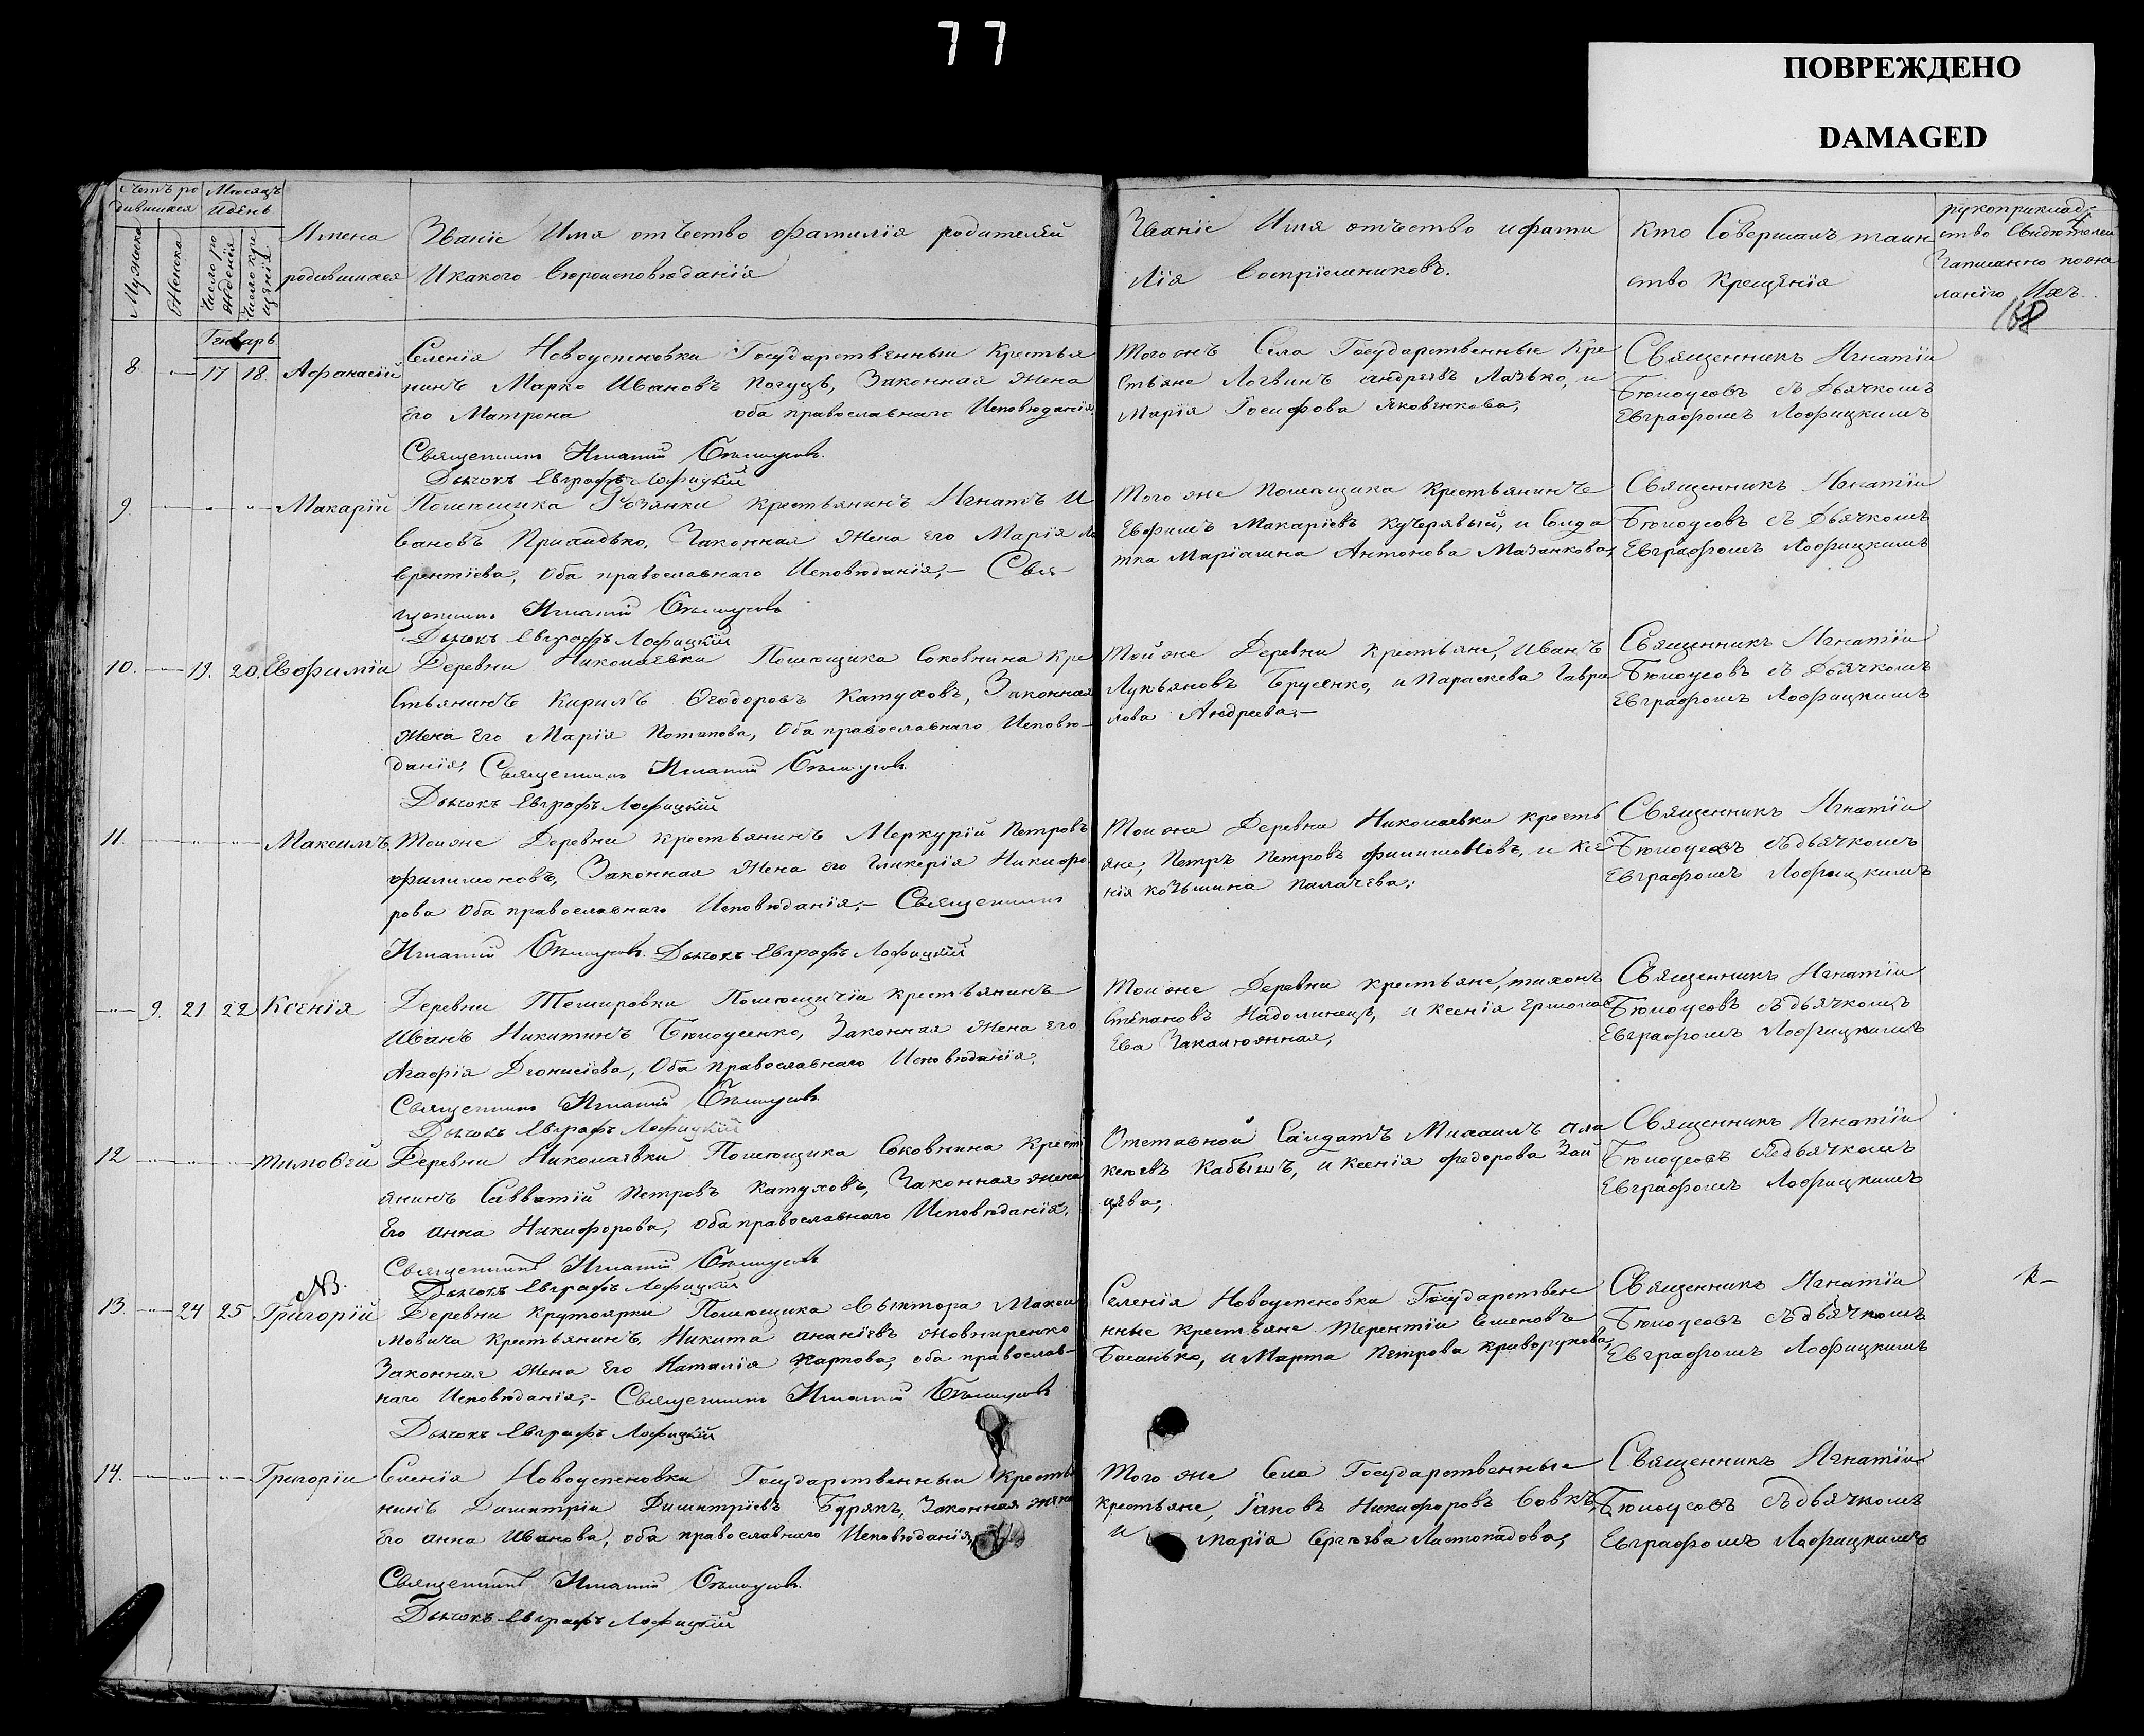 77
ПОВРЕЖДЕНО
DAMAGED
Счетъ ро
дившихся
Мѣсяцъ
и день
Мужика
Женска
Число ро
жденія
Число кре
щенія
Имена
родившихся
Званіе Имя отчество фамилія родителей
И какого вѣроисповѣданія
Званіе Имя отчество и фами
лія воспріемниковъ.
Кто Совершалъ таин
ство Крещенія
рукоприклад
ство Свидѣтелей
Записанно по же
ланію Ихъ
168
Генварь
8 17 18 Афанасій
Селенія Новоуспеновки Государственный Крестья
нинъ Марко Ивановъ Погуцъ, Законная жена
Его Матрона оба православнаго Исповѣданія,
Священникъ Игнатій
Дьячокъ Евграфъ Лофицкій
Того жъ Села Государственные Кре
стьяне Логвинъ Андреевъ Лазько, и
Марія Іосифова Яковенкова,
Священникъ Игнатій
Бѣлоусовъ съ Дьячкомъ
Евграфомъ Лофицкимъ
9 Макарій
Помѣщика Розянки Крестьянинъ Игнатъ И
вановъ Приаидько, Законная Жена Его Марія Ла
врентіева, Оба православнаго Исповѣданія,- Свя
щенникъ Игнатій
Дьячокъ Евграфъ Лофицкій
Того же Помѣщика Крестьянинъ
Евфимъ Макаріевъ Кучерявый, и Солда
тка Маріамна Антонова Мазанкова,
Священникъ Игнатій
Бѣлоусовъ съ Дьячкомъ
Евграфомъ Лофицкимъ
10. 19. 20. Евфимій
Деревни Николаевки Помѣщика Соковнина Кре
стьянинъ Кирилъ Ѳеодоровъ Катуховъ, Законная
Жена Его Марія Потапова, Оба православнаго Исповѣ-
данія, Священникъ Игнатій
Дьячокъ Евграфъ Лофицкій
Той же Деревни Крестьяне, Иванъ
Лукьяновъ Брусенко, и Параскева Гаври
лова Андреева,-
Священникъ Игнатій
Бѣлоусовъ съ Дьячкомъ
Евграфомъ Лофицкимъ
11. Максимъ
Той же Деревни Крестьянинъ Меркурій Петровъ
Филимоновъ, Законная Жена его Гликерія Никифо
рова Оба православнаго Исповѣданія,- Священникъ
Игнатій Дьячокъ Евграфъ Лофицкій
Той же Деревни Николаевки кресть
яне, Петръ Петровъ Филимоновъ, и Ксе
нія Козьмина Палачева;
Священникъ Игнатій
Бѣлоусовъ съ дьячкомъ
Евграфомъ Лофицкимъ
9. 21 22 Ксенія
Деревни Темировки Помѣщичій Крестьянинъ
Иванъ Никитинъ Бѣлоусенко, Законная Жена его
Агафія Діонисіева, Оба православнаго Исповѣданія,
Священникъ Игнатій
Дьячокъ Евграфъ Лофицкій
Той же Деревни Крестьяне, Тихонъ
Степановъ Надолинецъ, и Ксенія Ермола
Ева
Священникъ Игнатій
Бѣлоусовъ съ дьячкомъ
Евграфомъ Лофицкимъ
12 Тимоѳей
Деревни Николаевки Помѣщика Соковнина Крест
янинъ Савватій Петровъ Катуховъ, Законная жена
Его Анна Никифорова, Оба православнаго Исповѣданія,
Священникъ Игнатій
Дьячокъ Евграфъ Лофицкій
Отставной Салдатъ Михаилъ Але
ксѣевъ Кабышъ, и Ксенія Федорова Зай
цева,
Священникъ Игнатій
Бѣлоусовъ съ дьячкомъ
Евграфомъ Лофицкимъ
NB.
13. 24 25 Григорій
Деревни Крутоярки Помѣщика Вьиктора Макси
мовича Крестьянинъ Никита Ананіевъ Жовниренко
Законная Жена Его Наталія Карпова, оба православ-
наго Исповѣданія,- Священникъ Игнатій
Дьячокъ Евграфъ Лофицкій
Селенія Новоуспеновки Государствен
нные крестьяне Терентій Семеновъ
Басанько, и Марта Петрова Криворукова,
Священникъ Игнатій
Бѣлоусовъ съ дьячкомъ
Евграфомъ Лофицкимъ
14. Григорій
Селенія Новоуспеновки Государственный Крестья
нинъ Димитрій Димитріевъ Бурякъ, Законная жена
Его Анна Иванова, оба православнаго Исповѣданія,
Священникъ Игнатій
Дьячокъ Евграфъ Лофицкій
Того же Села Государственные
Крестьяне, Іаковъ Никифоровъ Вовкъ,
и Марія Сергѣева Листопадова,
Священникъ Игнатій
Бѣлоусовъ съ дьячкомъ
Евграфомъ Лофицкимъ